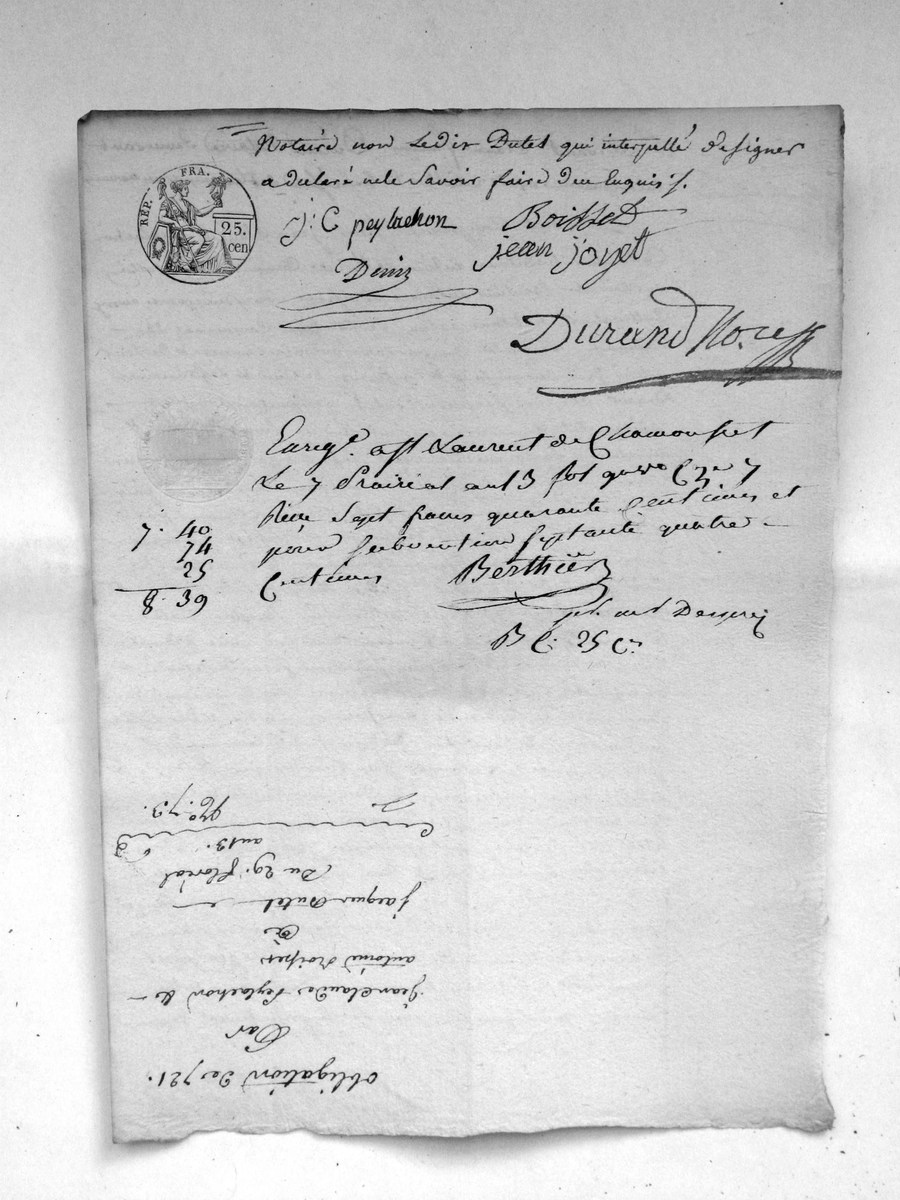 Notaire non Ledit Dutel qui interpellé de signer
a déclaré ne le Savoir faire deu Enquis ./.
RÉP. FRA.
25.
cen
j. C peylachon
Boisset
jean joyet
Denis
Durand No.re
Enreg.é a St Laurent de Chamousset
Le 7 Prairial an 13 fol C.e 7
Reçu Sept francs quarante Centimes et
pour Subvention Septante quatre
Centimes
Berthier
7. 40
74
25
8. 39
B C. 25 C.
obligation de 721.
Par
jean Claude Peylachon &
antoine
a
jacques Dutel
Du 29. floréal
an 13.